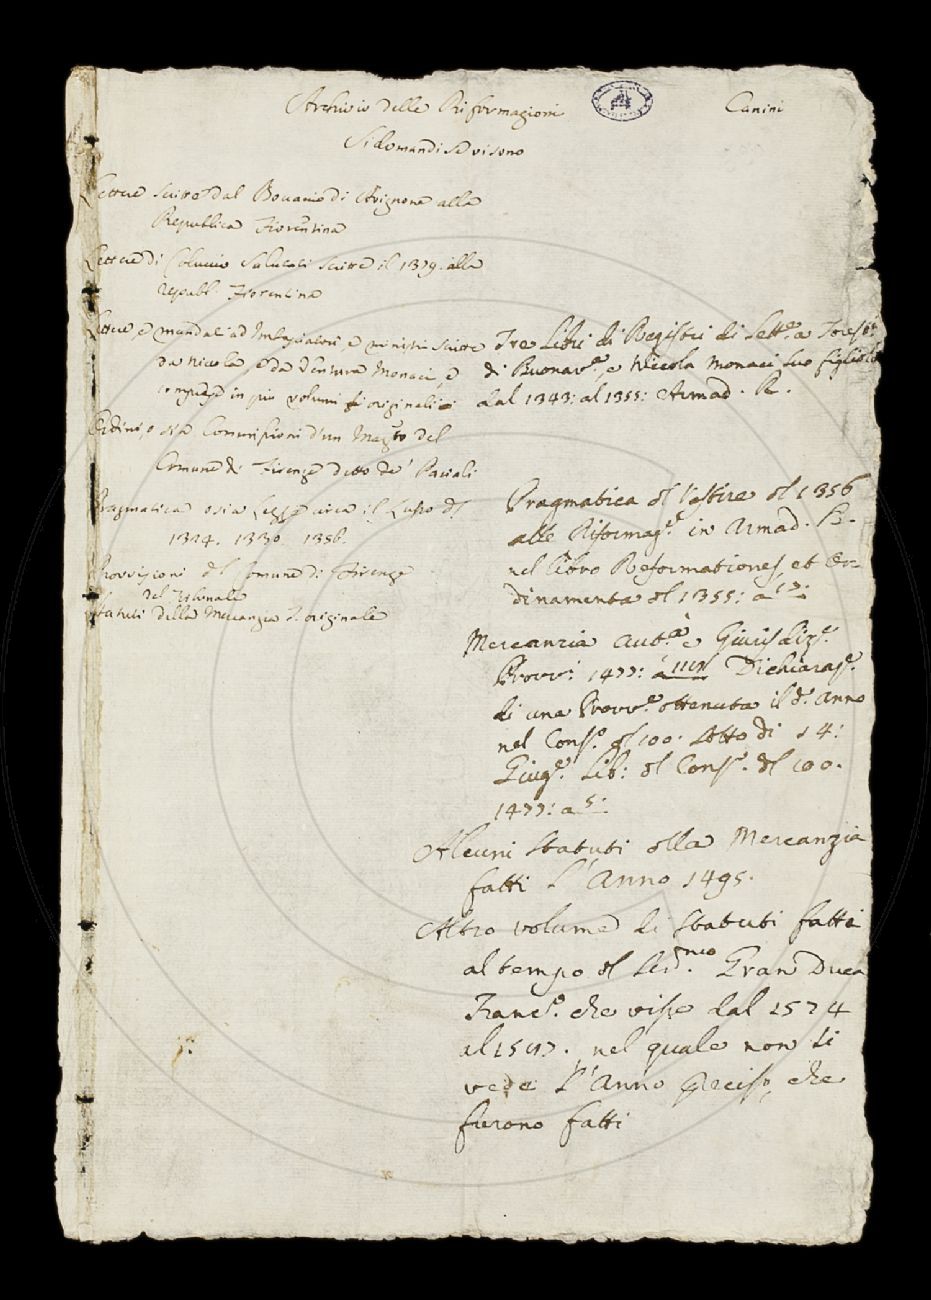 Archivio delle Riformagioni
Canini
Si domandi se vi sono
Lettere scritte dal Bovanio di Avignone alla
Republica Fiorentina
Lettere di Coluccio Salutati scritte il 1379. alla
republ. Fiorentina
Lettere, e mandati ad Imbasciatori, e ministri scritte
da Nicola, e da Ventura Monaci, e
comprese in più volumi originali
Ordini, o sia Commissioni d'un Magto del
Comune di Firenze detto de' Paciali
Pragmatica o sia Legge circa il Lusso del
1324. 1330. 1356.
Provvisioni del Comune di Firenze
del Tribunale
Statuti della Mercanzia originale
Tre Libri di Registri di Lette a
di Buonave, e Niccola Monaci suo figliolo
dal 1343: al 1355: Armad.
Pragmatica del Vestire del 1356
alle Riformage in Armad.
nel libro Reformationes, et Or-
dinamenta del 1355: a 17:
Mercanzia autà e Giurisdize.
Provvi 1477: a Dichiaraze.
di una Provve ottenuta il do. anno
nel Conso. del 100. sotto di 14:
Giugo. Lib: del Conso. del 100.
1477: a 5:
Alcuni statuti della Mercanzia
fatti l'Anno 1495.
Altro volume di statuti fatti
al tempo del Sermo. Gran Duca
Franco. che visse dal 1574
al 1587. nel quale non si
vede l'Anno preciso, che
furono fatti